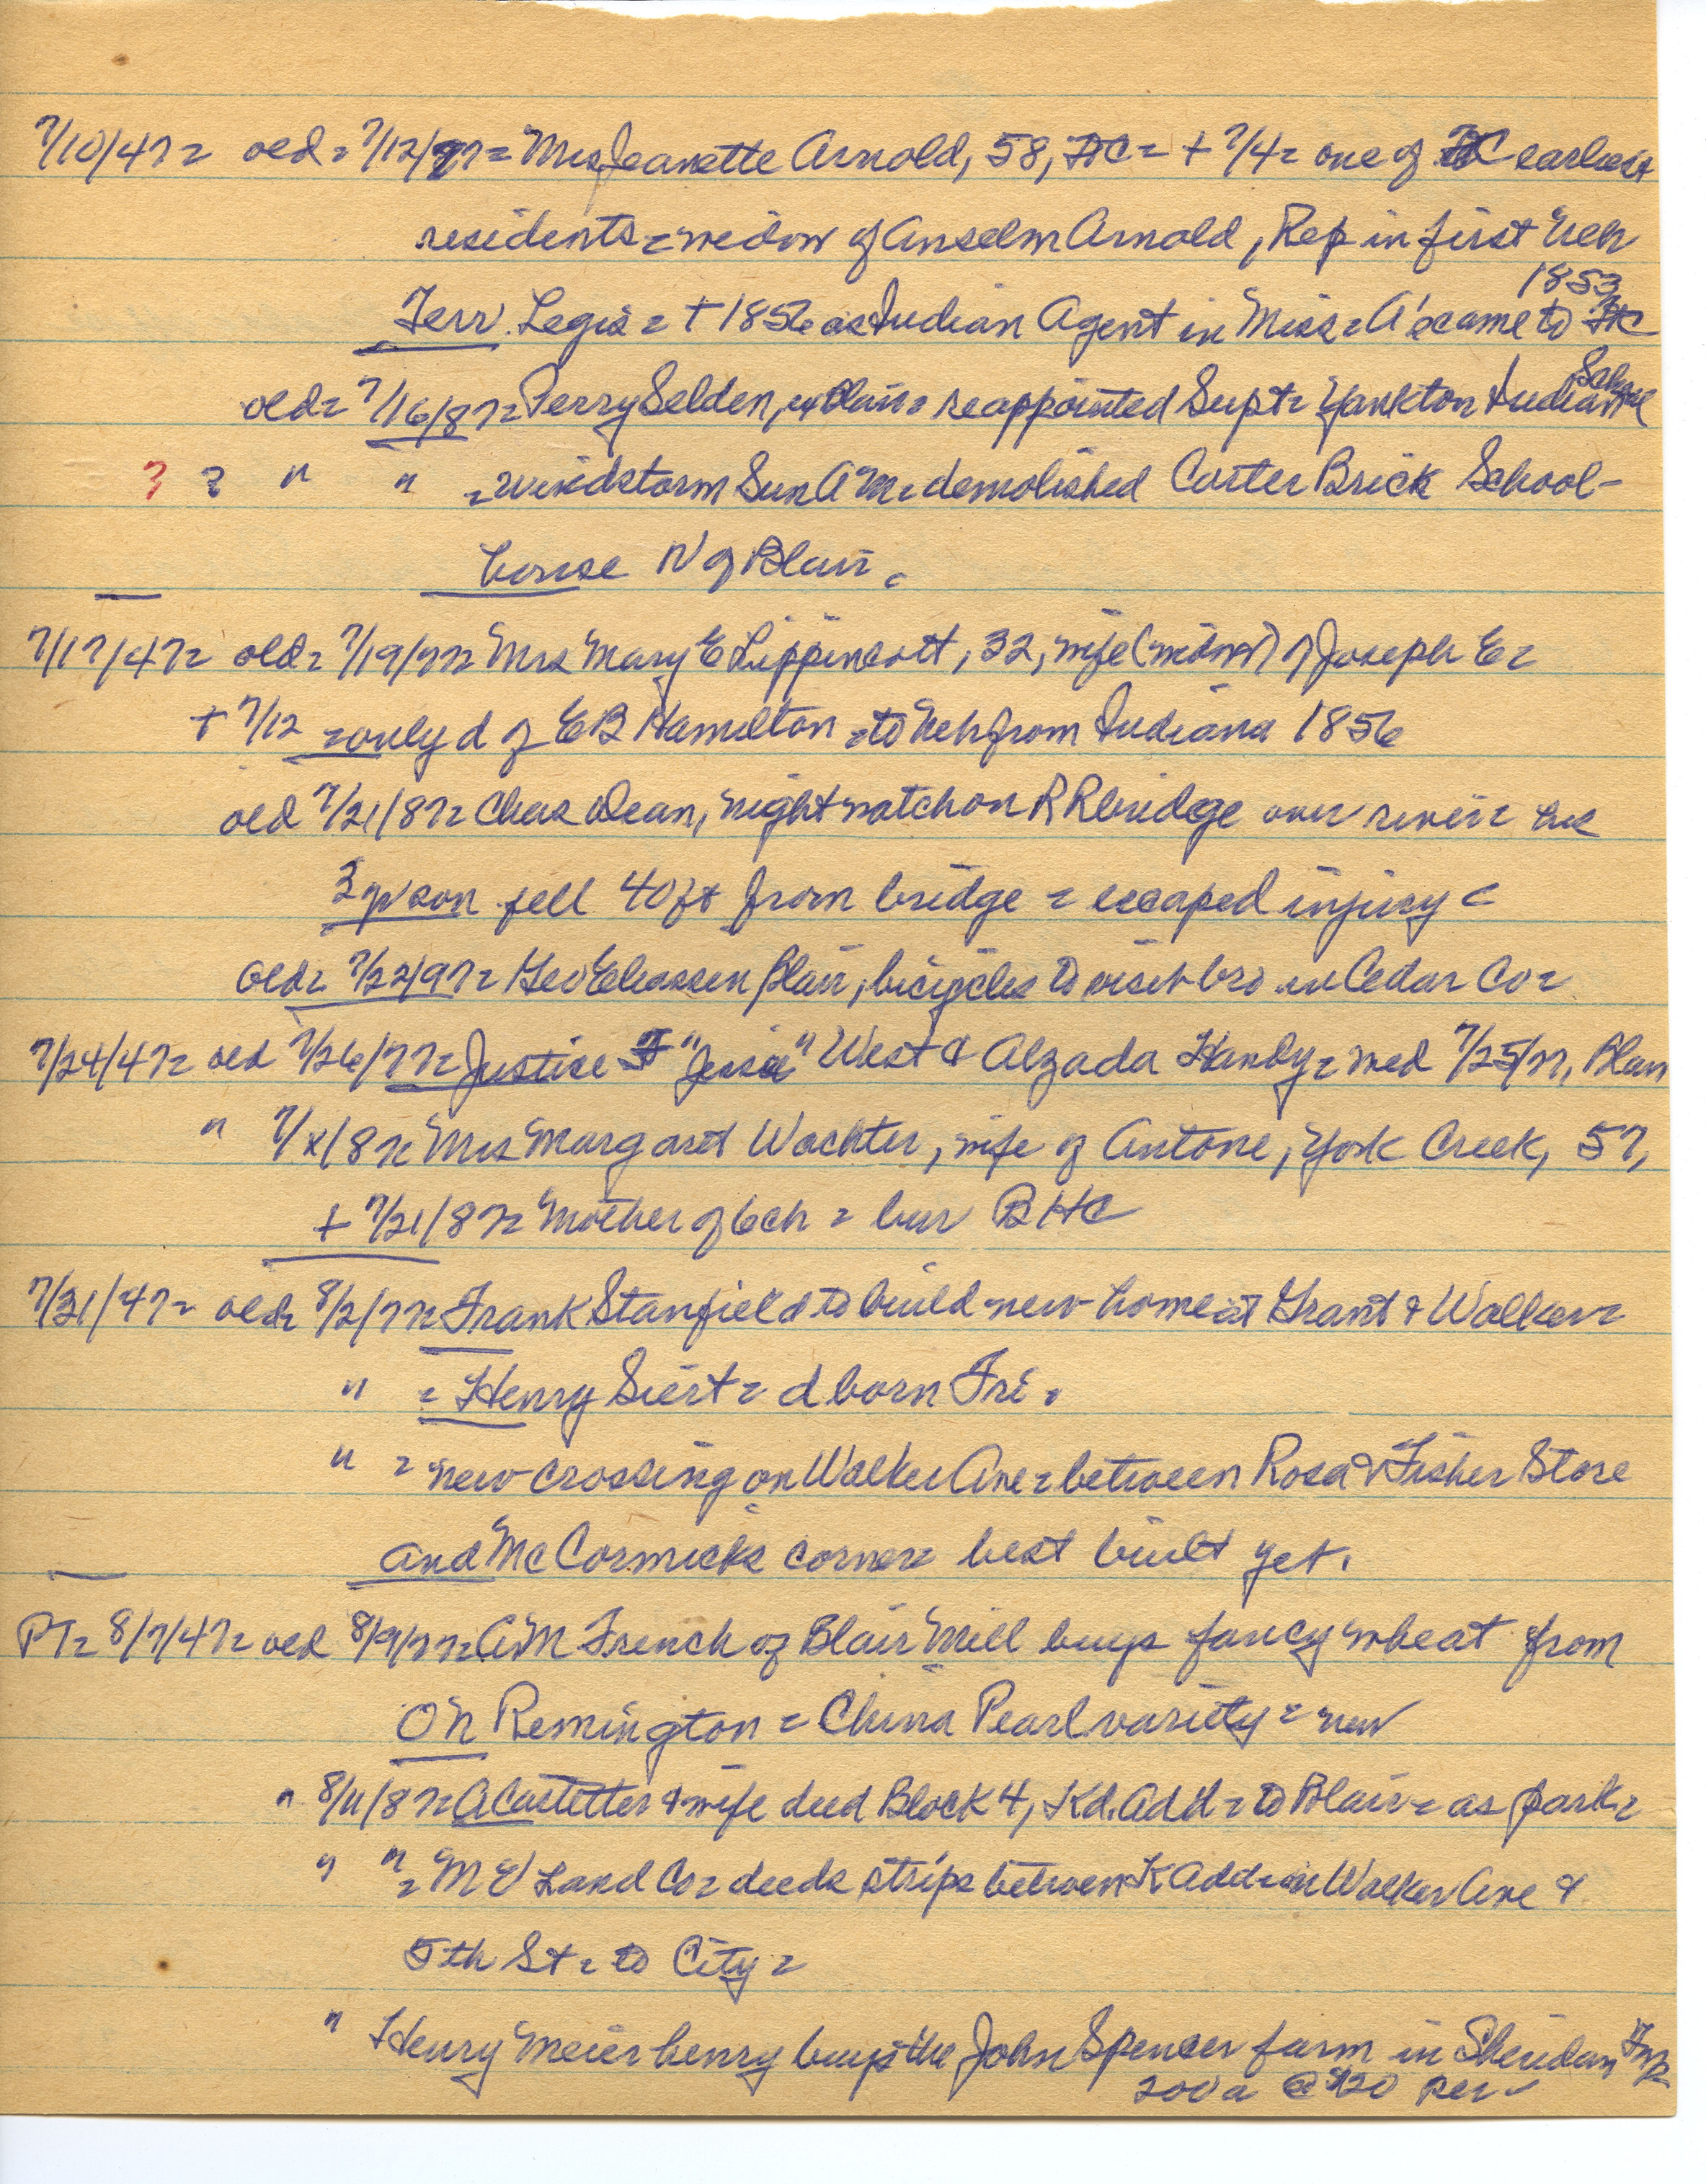 7/10/47= old= 7/12/77= Mrs Jeanette Arnold, 58, FtC= + 7/4= one of FtC earliest
residents= widow of Anselm Arnold, Rep in first Neb
Terr. Legis= + 1856 as Indian Agent in Miss= A's came to FtC 1853
old= 7/16/87= Perry Selden, Blair= reappointed Supt= Yankton Indian School
? ? " " = windstorm Sun AM= demolished Carter Brick School-
house N of Blair.
7/17/47= old= 7/19/77= Mrs Mary E Lippincott, 32, wife (widow?) of Joseph E=
+ 7/12 =only d of EB Hamilton =to Neb from Indiana 1856
old 7/21/87= Chas Dean, night watch on RR bridge over river= his
3 yr son fell 40 ft from bridge = escaped injury=
old= 7/22/97= Geo Eliassen Blair, bicycles to visit bro in Cedar Co=
7/24/47= old 7/26/77= Justice "Jessie" West & Alzada Handy= med 7/25/77, Blair
" 7/x/87= Mrs Margaret Wachter, wife of Antone, York Creek, 57,
+ 7/21/87= Mother of 6 ch = bur BHC
7/31/47= old= 8/2/77= Frank Stanfield to build new home at Grant & Walker=
" = Henry Siert= d born Fri.
" = new crossing on Walker Ave= between Rosa & Fisher Store
and McCormicks corner= best built yet.
PT= 8/7/47= old 8/9/77= AM French of Blair Mill buys fancy wheat from
ON Remington = China Pearl variety = new
" 8/11/87= A Castetter & wife deed Block 4, Kd. Add= to Blair= as park=
" " = MV Land Co= deeds strips between K Add= on Walker Ave &
5th St= to City=
" Henry Meierhenry buys the John Spencer farm in Sheridan Twp
200 a @ $20 per